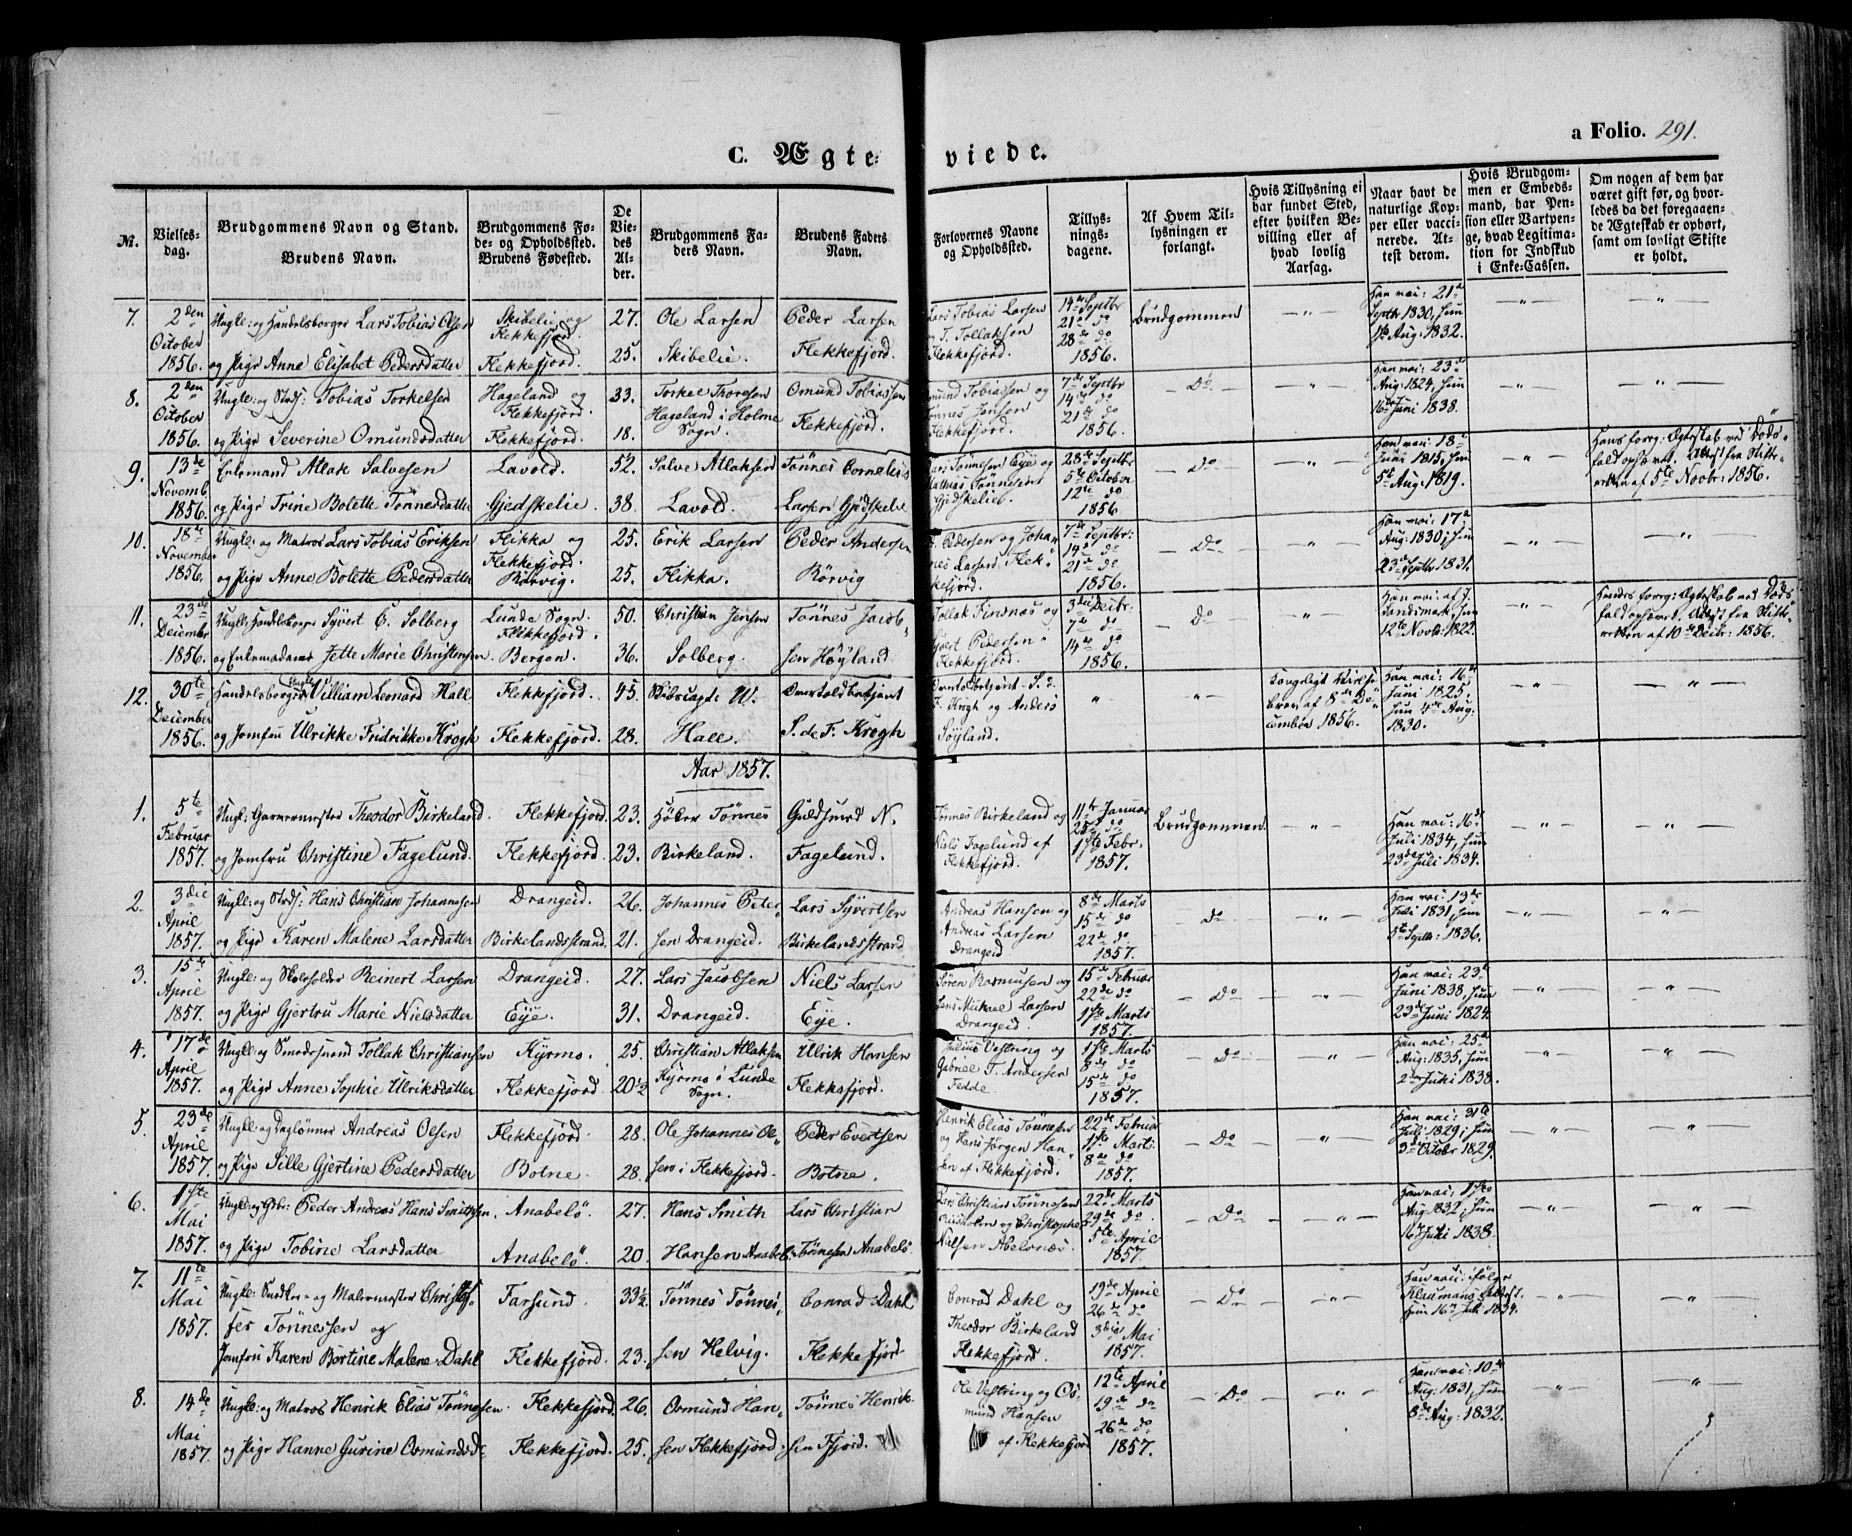 C. Ægte-
viede.
a Folio. 291.
№.
Vielses-
dag.
Brudgommens Navn og Stand.
Brudens Navn.
Brudgommens Fø-
de- og Opholdssted.
Brudens Fødested.
De
Vie-
des
Al-
der.
Brudgommens Fa-
ders Navn.
Brudens Faders
Navn.
Forlovernes Navne
og Opholdssted.
Tillys-
nings-
dagene.
Af Hvem Til-
lysningen er
forlangt.
Hvis Tillysning ei
har fundet Sted,
efter hvilken Be-
villing eller af
hvad lovlig
Aarsag.
Naar havt de
naturlige Kop-
per eller vacci-
nerede. At-
test derom.
Hvis Brudgom-
men er Embeds-
mand, har Pen-
sion eller Vartpen-
ge, hvad Legitima-
tion for Indskud
i Enke-Cassen.
Om nogen af dem har
været gift før, og hvor-
ledes da det foregaaen-
de Ægteskab er ophørt,
samt om lovligt Skifte
er holdt.
7. 2den Ungk: og Handelsborger Lars Tobias Olsen Skibeli og 27. Ole Larsen Peder Larsen Lars Tobias Larsen 14de Septbr Brudgommen -"- Han vac: 21de -"- -"-
October Flekkefjord. T. Tollaksen 21de do Septbr 1830, hun
1856. og Pige Anne Elisabet Pedersdatter Flekkefjord. 25. Skibelie. Flekkefjord. Flekkefjord. 28de do Aug: 1832.
1856.
8. 2den Ungk: og Tobias Torkelsen Hageland og 33. Torkel Thoresen Omund Tobiassen Omund Tobiassen og 7de Septbr Do -"- Han vac: 23de -"- -"-
October Flekkefjord. Hageland i Holme Tønnes Jensen 14de do Aug: 1824, hun
1856. og Pige Severine Omundsdatter Flekkefjord. 18. Sogn. Flekkefjord. Flekkefjord. 21de do 16de Juni 1838.
1856.
9. 13de Enkemand Atlak Salvesen Lavold. 52. Salve Atlaksen Tønnes Cornelius Lars Tønnesen Eye og 28de Septbr Do -"- Han vac: 18de -"- Hans forrg: Ægteskab ved Døds-
Novemb. Mathias Tønnesen 5te October Juni 1815, hun fald ophævet. Attest fra Skift-
1856. og Pige Trine Bolette Tønnesdatter Gjedskelie. 38. Lavold. Larsen Gjedskelie Gjedskelie. 12te do 5te Aug: 1819. retten af 5te Novbr: 1856.
1856
10. 18de Ungk: og Matros Lars Tobias Eriksen Flikka og 25. Erik Larsen Peder Andersen Pedersen og Johan- 7de Septbr: Do -"- Han vac: 17de -"- -"-
November Flekkefjord. nes Larsen, Flek- 14de do Aug: 1830, hun
1856. og Pige Anne Bolette Pedersdatter Rørvig. 25. Flikka. Rørvig kefjord. 21de do 23de Septbr 1831.
1856.
11. 23de Ungk: Handelsborger Syvert C. Solberg Lunde Sogn. 50. Christian Jensen Tønnes Jacob- Tollak Finsnæs og 3die Decbr: Do -"- Han vac: af -"- Hendes forrg: Ægteskab ved Døds-
December Flekkefjord. 7de do Landsmark, hun fald ophævet. Attest fra Skift-
1856. og Enkemadame Jette Marie Christensen. Bergen. 36. Solberg. sen Høyland Flekkefjord. 14de do 12te Novb: 1822. retten af 10de Decbr: 1856.
1856.
12. 30te Handelsborger Ungk: William Leonard Hall Flekkefjord. 45. Skibscapt: W. Overtoldbetjent Overtoldbetjent S. d. " -"- Kongeligt -"- Han vac: 16de -"- -"-
December F. Krogh og Anders brev af 8de De- Juni 1825,
1856. og Jomfru Ulrikke Fridrikke Krogh Flekkefjord. 28. Hall. S. de F. Krogh Søyland. cember 1856. hun 4de Aug:
1830.
Aar 1857.
1. 5te Ungk: Garvermester Theodor Birkeland. Flekkefjord. 23. Tønnes Guldsmed N. Tønnes Birkeland og 11te Januar Brudgommen. -"- Han vac: 16de -"- -"-
Februar Niels Fagelund af 25de do Juli 1834, hun
1857. og Jomfru Christine Fagelund. Flekkefjord. 23. Birkeland. Fagelund. Flekkefjord. 1ste Febr. 23de Juli 1834.
1857.
2. 3die Ungk: og Hans Christian Johannesen Drangeid. 26. Johannes Peter- Lars Syvertsen Andreas Hansen og 8de Marts Do -"- Han vac: 13de -"- -"-
April Andreas Larsen 15de do Juli 1831, hun
1857. og Pige Karen Malene Larsdatter Birkelandsstrand. 21. sen Drangeid. Birkelandsstrand Drangeid 22de do 5te Septbr: 1836.
1857.
3. 15de Ungk: og Skoleholder Reinert Larsen Drangeid. 27. Lars Jacobsen Niels Larsen Søren Rasmussen og 15de Februar Do -"- Han vac: 23de -"- -"-
April Jens Mickael Larsen 22de do Juni 1838, hun
1857. og Pige Gjertru Marie Nielsdatter Eye. 31. Drangeid. Eye. Drangeid. 1ste Marts 23de Juni 1824.
1857.
4. 17de Ungk: og Tollak Christiansen Kyrmo. 25. Christian Atlaksen Ulrik Hansen Julius Vestring og 1ste Marts Do -"- Han vac: 25de -"- -"-
April Kyrmo i Lunde Gabriel T. Andersen 8de do Aug: 1835, hun
1857. og Pige Anne Sophie Ulriksdatter Flekkefjord. 20½ Sogn. Flekkefjord. Fedde. 15de do Juli 1838.
1857.
5. 23de Ungk: og Daglønner Andreas Olsen Flekkefjord. 28. Ole Johannes Ol- Peder Evertsen Henrik Elias Tønnesen 22de Februar Do -"- Han vac: 31te -"- -"-
April og Hans Jørgen Han- 1ste Mart: Juli 1829, hun
1857. og Pige Sille Gjertine Pedersdatter Botne. 28. sen i Flekkefjord. Botne. sen af Flekkefjord. 8de do 3die Octobr 1829.
1857.
6. 1ste Ungk: og Peder Andreas Hans Smithsen. Anabelö. 27. Hans Smith Lars Christian Lars Christian Tønnesen 22de Marts Do -"- Han vac: 1ste -"- -"-
Mai og Christopher 29de do. Aug: 1832, hun
1857. og Pige Tobine Larsdatter Anabelö. 20. Hansen Anabelö: Tønnesen Anabelö Nielsen Abelnæs. 5te April Juli 1838.
1857.
7. 11te Ungk: Snedker- og Malermester Christof- Farsund. 33½ Tønnes Tønne- Conrad Dahl Conrad Dahl og 19de April Do -"- Han vac: ifølge -"- -"-
Mai fer Tönnessen og Theodor Birkeland 26de do Attest.
1857. Jomfru Karen Bertine Malene Dahl Flekkefjord. 23. sen Helvig. Flekkefjord. Flekkefjord. 3die Mai hun 16de Juli 1834.
1857.
8. 14de Ungk: og Matros Henrik Elias Tønnesen. Flekkefjord. 26. Osmund Han- Tønnes Henrik- Ole Vestring og Os- 12te April Do -"- Han vac: 10de -"- -"-
Mai mund Hansen 19de do Aug: 1831, hun
1857. og Pige Hanne Gurine Osmundsd. Flekkefjord. 25. sen Flekkefjord. sen Fjord. af Flekkefjord 26de do 8de Aug: 1832.
1857.